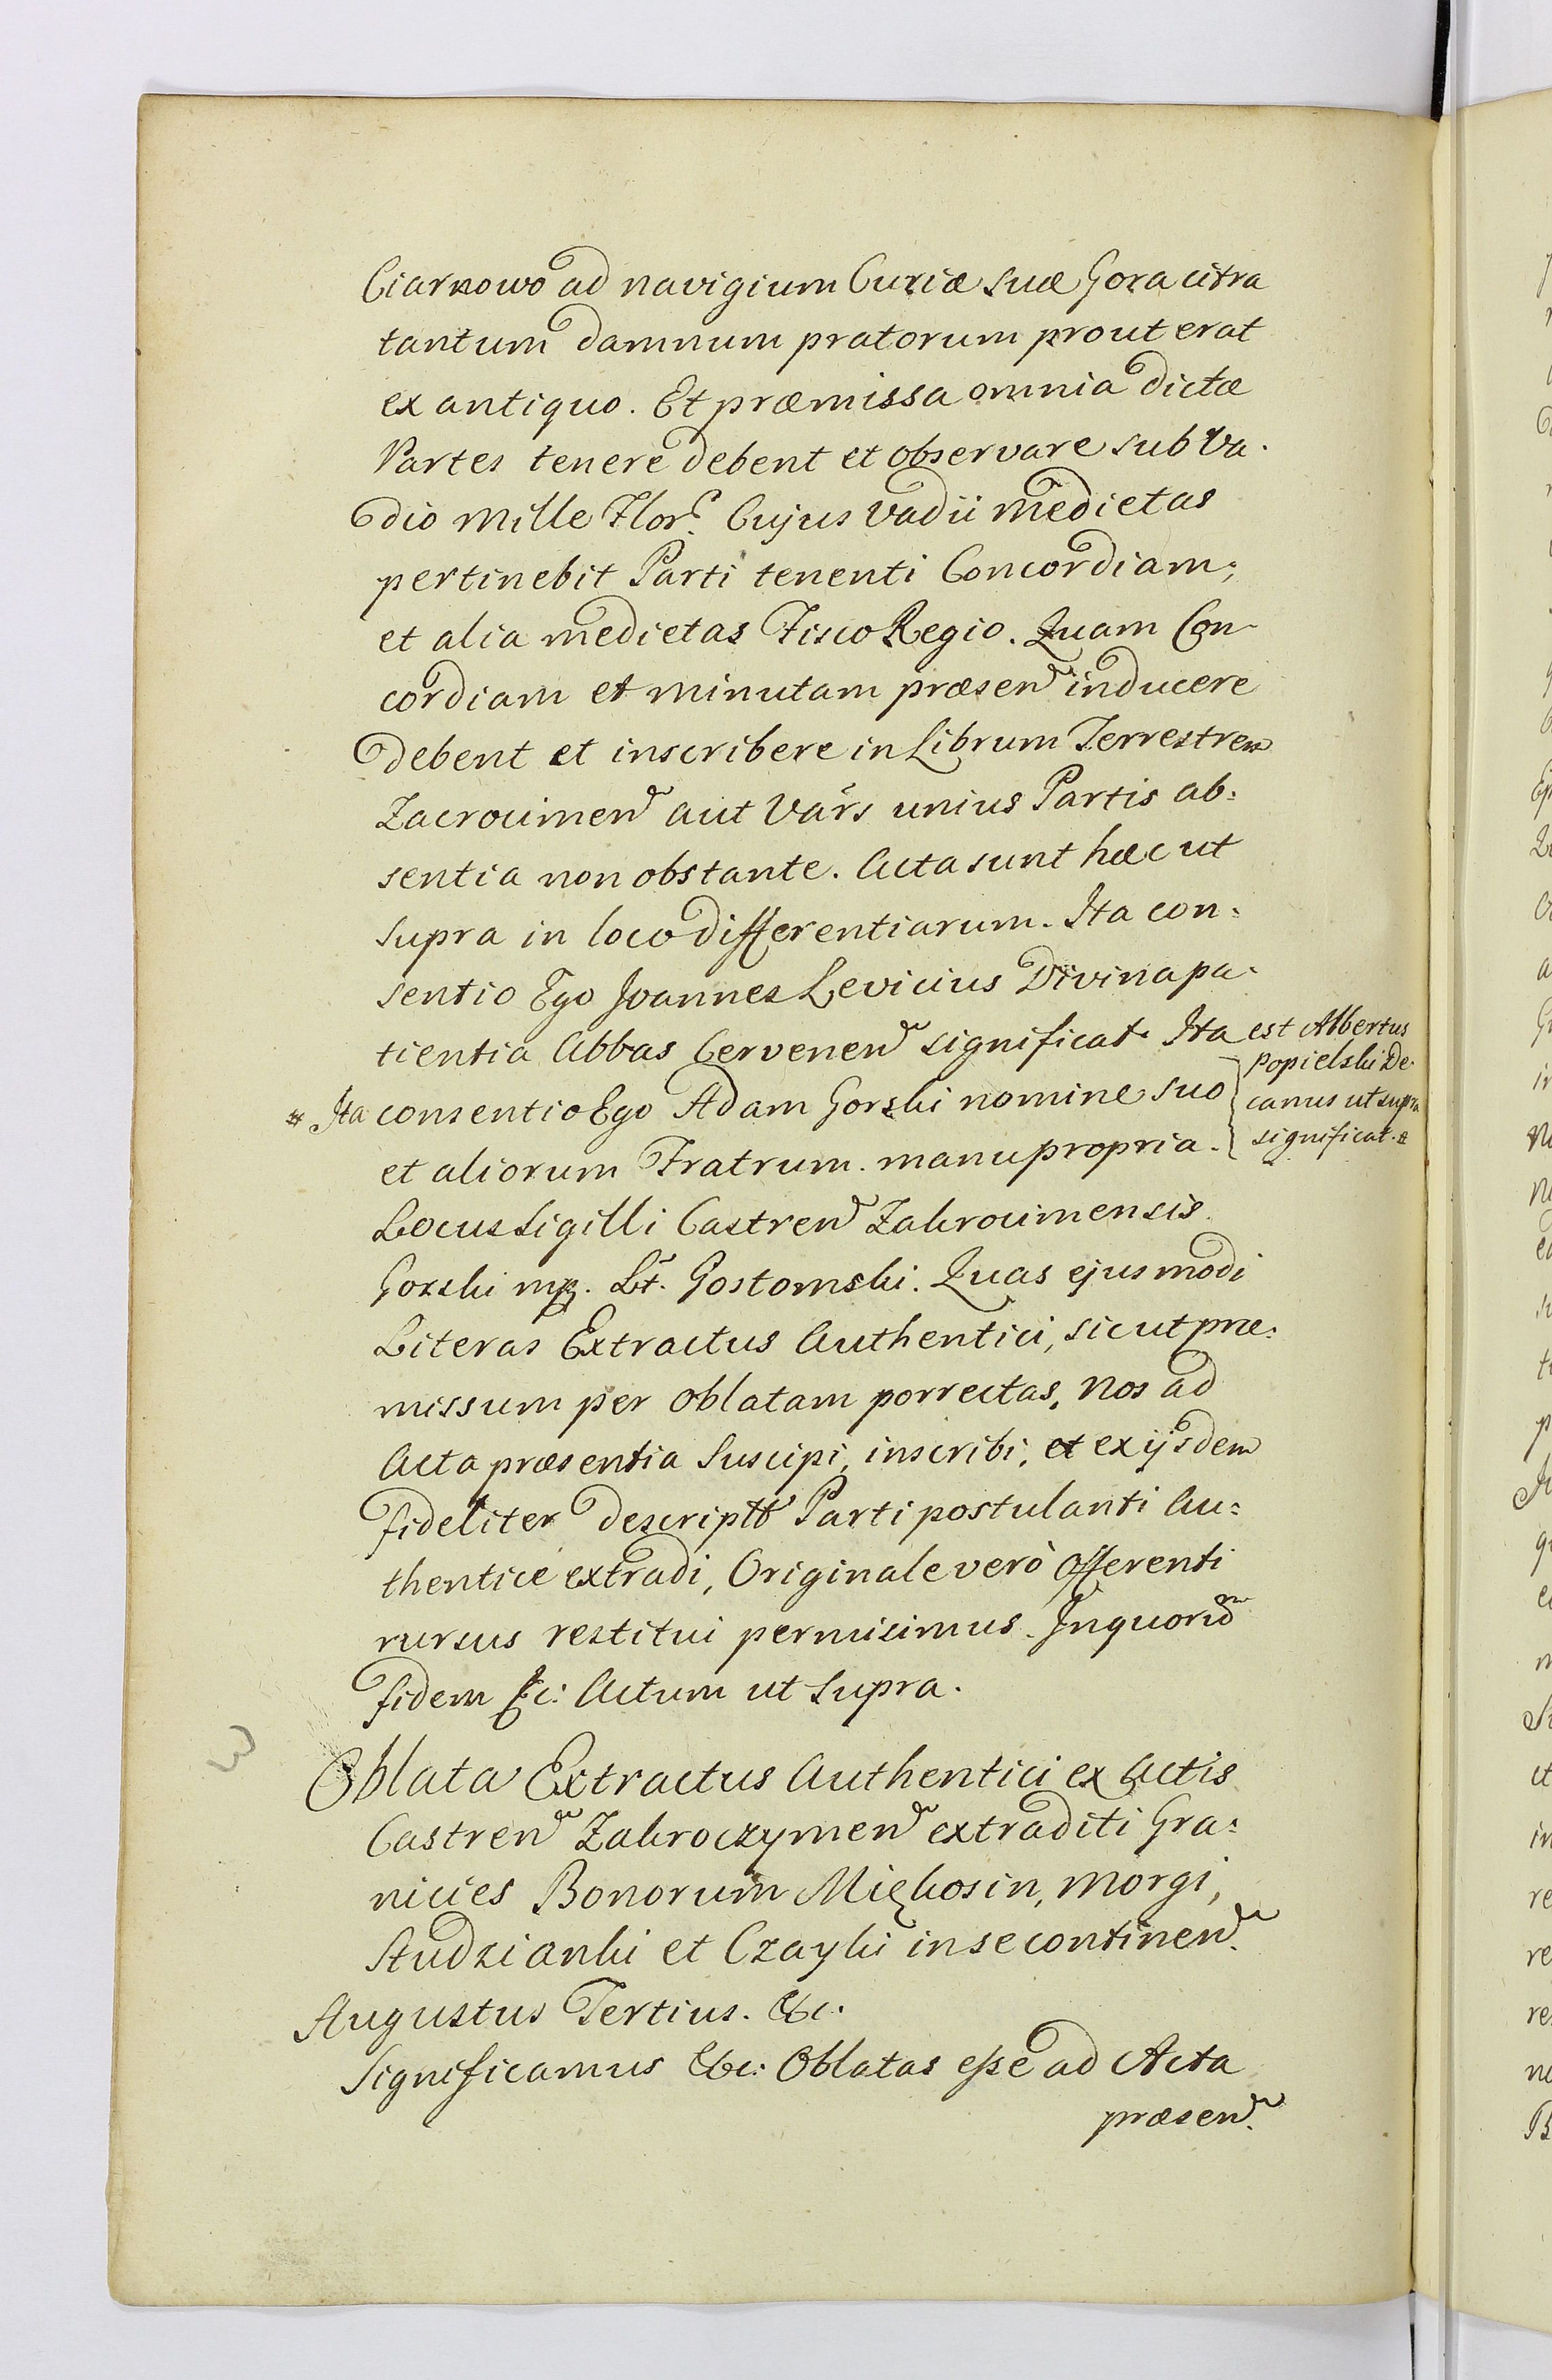 Ciarnowo ad navigium Curiæ suæ Gora citra
tantum damnum pratorum prout erat
ex antiquo. Et præmissa omnia dictæ
Partes tenere debent et observare sub Va-
dio mille Flor: Cujus Vadii medietas
pertinebit Parti tenenti Concordiam;
et alia medietas Fisco Regio. Quam Con-
cordiam et minutam præsen inducere
debent et inscribere in Librum Terrestrem
Zacrocimen aut Vars unius Partis ab:
sentia non obstante. Acta sunt hæc ut
supra in loco differentiarum. Ita con:
sentio Ego Joannes Levicius Divina pa-
tientia Abbas Cervenen significat. Ita est Albertus
Popielski De-
canus ut supra
significat. #
# Ita consentio Ego Adam Gorski nomine suo
et aliorum Fratrum. manu propria.
Locus Sigilli Castren Zakrocimensis.
Gorski mp. Lt. Gostomski. Quas ejusmodi
Literas Extractus Authentici, sicut præ:
missum per oblatam porrectas, Nos ad
Acta præsentia Suscipi, inscribi, et ex ijsdem
fideliter descriptt Parti postulanti Au:
thentice extradi, Originale verò Offerenti
rursus restitui permisimus. In quorum
fidem &c: Actum ut Supra.
Oblata Extractus Authentici ex Actis
Castren Zakroczymen extraditi Gra:
nicies Bonorum Miękosin, Morgi,
Studzianki et Czayki in se continen.
Augustus Tertius. &c.
Significamus &c: Oblatas esse ad Acta
præsen.